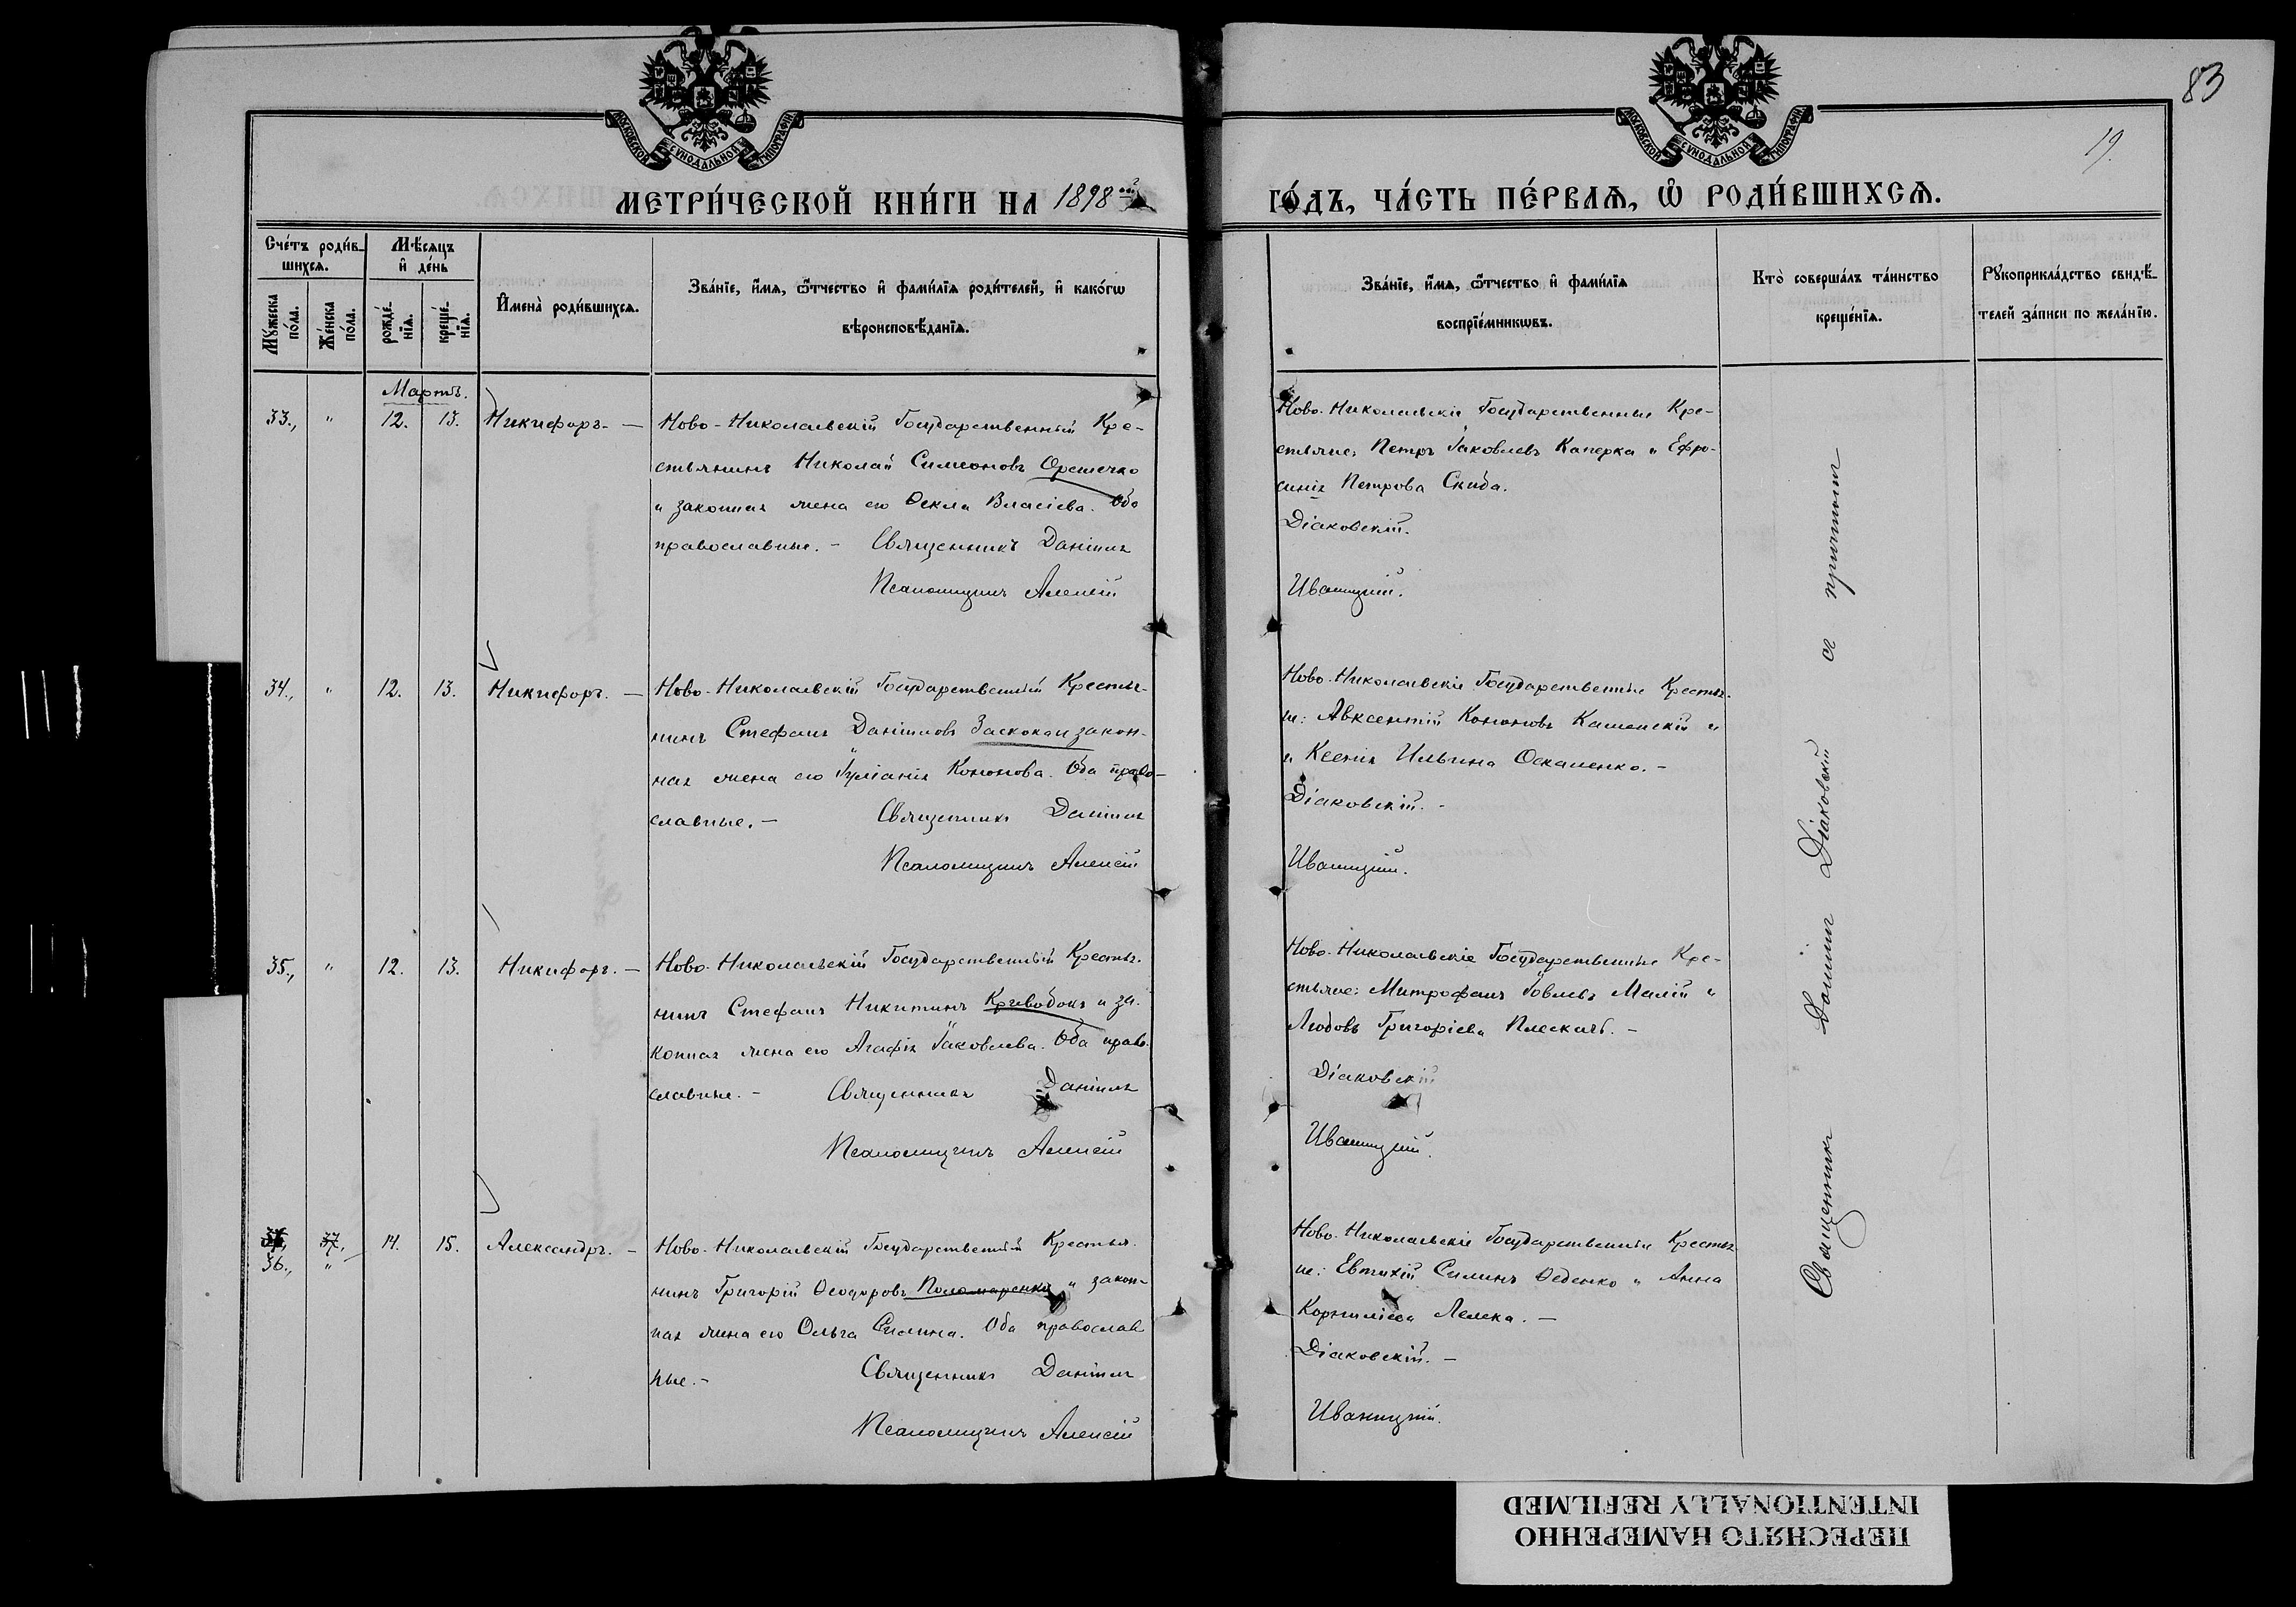 83
19.
МОСКОВСКОЙ СѴНОДАЛЬНОЙ ТИПОГРАФІИ
МОСКОВСКОЙ СѴНОДАЛЬНОЙ ТИПОГРАФІИ
МЕТРИ́ЧЕСКОЙ КНИ́ГИ НА 1898 ГО́ДЪ, ЧА́СТЬ ПЕ́РВАѦ, Ѡ҆ РОДИ́ВШИХСѦ.
Сче́тъ роди́в-
шихсѧ.
Мѣ́сѧцъ
и҆ де́нь
Мꙋ́жеска по́ла.
Же́нска по́ла.
рожде́-
нїѧ.
креще́-
нїѧ.
И҆мена̀ роди́вшихсѧ.
Зва́нїе, и҆́мѧ, ѻ҆́тчество и҆ фами́лїѧ роди́телей, и҆ како́гѡ
вѣроисповѣ́данїѧ.
Зва́нїе, и҆́мѧ, ѻ҆́тчество и҆ фами́лїѧ
воспрїе́мникѡвъ.
Кто̀ соверша́лъ та́инство
креще́нїѧ.
Рꙋкоприкла́дство свидѣ́-
телей за́писи по жела́нїю.
Мартъ.
33., " 12. 13. Никифоръ. —
Ново-Николаевскій Государственный Кре-
стьянинъ Николай Симеоновъ Орешечко
и законная жена его Ѳекла Власіева. Оба
православные. – Священникъ Даніилъ
Псаломщикъ Алексій
Ново-Николаевскіе Государственные Кре-
стьяне: Петръ Іаковлевъ Каперка и Ефро-
синія Петрова Скиба.
Діаковскій.
Иваницкій.
34., " 12. 13. Никифоръ. —
Ново-Николаевскій Государственный Крестья-
нинъ Стефанъ Даніиловъ Заскока и закон-
ная жена его Іуліанія Кононова. Оба право-
славные. – Священникъ Даніилъ
Псаломщикъ Алексій
Ново-Николаевскіе Государственные Крестья-
не: Авксентій Кононовъ Каменскій и
и Ксенія Ильина Оскаленко. –
Діаковскій. –
Иваницкій.
35., " 12. 13. Никифоръ. —
Ново-Николаевскій Государственный Крестья-
нинъ Стефанъ Никитинъ Кривобокъ и за-
конная жена его Агафія Іаковлева. Оба право-
славные. – Священникъ Даніилъ
Псаломщикъ Алексій
Ново-Николаевскіе Государственные Кре-
стьяне: Митрофанъ Іовлевъ Малій и
Любовь Григоріева Плескачъ. –
Діаковскій
Иваницкій.
37,
36., " 14. 15. Александръ. –
Ново-Николаевскій Государственный Крестья-
нинъ Григорій Ѳеодоровъ Поломаренко и закон-
ная жена его Ольга Силина. Оба православ
ные. – Священникъ Даніилъ
Псаломщикъ Алексій
Ново-Николаевскіе Государственные Крестья-
не: Евтихій Силинъ Феденко и Анна
Корниліева Лелека. –
Діаковскій. –
Иваницкій.
Священникъ Даніилъ Діаковскій съ причтомъ
ПЕРЕСНЯТО НАМЕРЕННО
INTENTIONALLY REFILMED